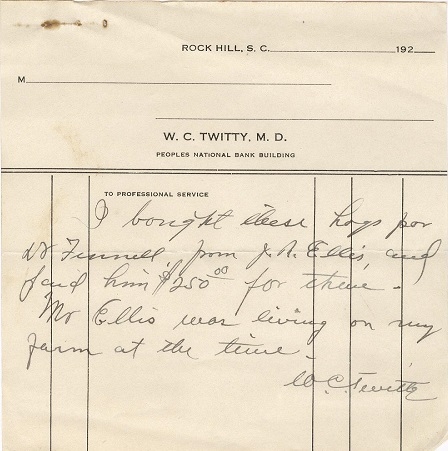 ROCK HILL, S. C. 192
M
W. C. TWITTY, M. D.
PEOPLES NATIONAL BANK BUILDING
TO PROFESSIONAL SERVICE
I bought these hogs for
Dr Fennell, from J. R. Ellis, and
paid him $250 00 for them -
Mr Ellis was living on my
farm at the time -
W. C. Twitty